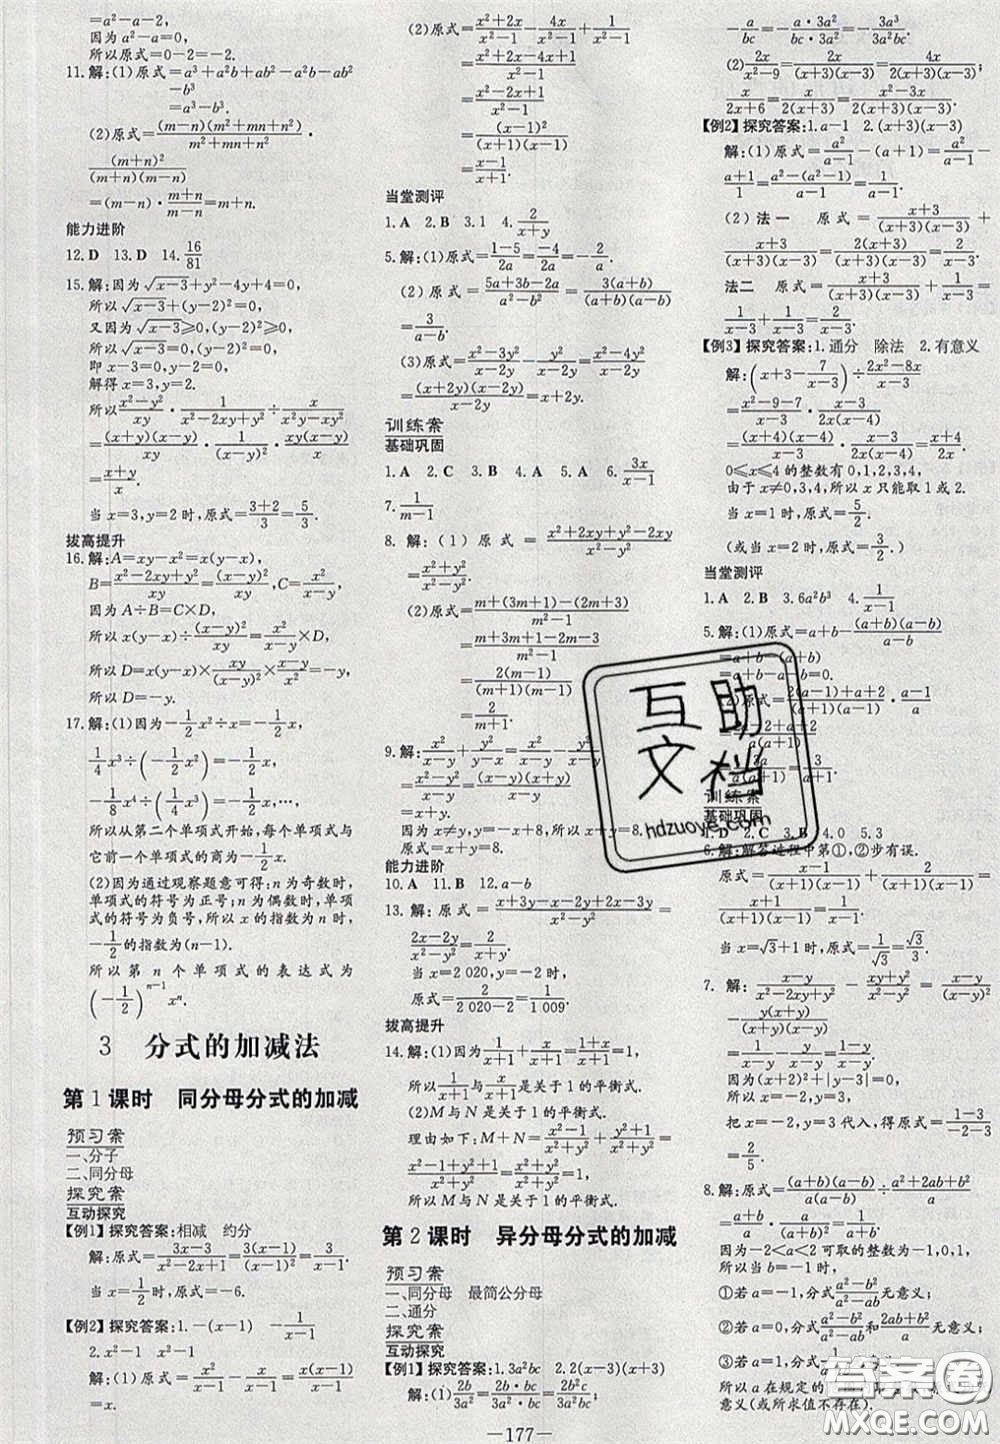 =a²-a-2,
因为a²-a=0,
所以原式=0-2=-2.
11.解:(1)原式=a³+a²b+ab²-a²b-ab²
-b³
=a³-b³.
(2)原式=\frac{(m-n)(m²+mn+n²)}{m²+mn+n²}·
\frac{(m+n)²}{(m+n)(m-n)}÷\frac{m-n}{m+n}
=(m-n)·\frac{m+n}{m-n}=m+n.
能力进阶
12.D 13.D 14.\frac{16}{81}
15.解:因为\sqrt{x-3}+y²-4y+4=0,
所以\sqrt{x-3}+(y-2)²=0,
又因为\sqrt{x-3}≥0,(y-2)²≥0,
所以\sqrt{x-3}=0,(y-2)²=0,
即x-3=0,y-2=0,
解得x=3,y=2.
所以\frac{x²-y²}{xy}·\frac{1}{x²-2xy+y²}÷\frac{x}{x²y-xy²}
=\frac{(x+y)(x-y)}{xy}·\frac{1}{(x-y)²}·\frac{xy(x-y)}{x}
=\frac{x+y}{x}.
当x=3,y=2时,原式=\frac{3+2}{3}=\frac{5}{3}.
拔高提升
16.解:A=xy-x²=x(y-x),
B=\frac{x²-2xy+y²}{xy},C=\frac{x²}{x-y},
因为A÷B=C×D,
所以x(y-x)÷\frac{(x-y)²}{xy}=\frac{x²}{x-y}×D,
所以D=x(y-x)×\frac{xy}{(x-y)²}×\frac{x-y}{x²},
所以D=-y.
17.解:(1)因为-\frac{1}{2}x²÷x=-\frac{1}{2}x,
\frac{1}{4}x³÷(-\frac{1}{2}x²)=-\frac{1}{2}x,
-\frac{1}{8}x⁴÷(\frac{1}{4}x³)=-\frac{1}{2}x,…,
所以从第二个单项式开始,每个单项式与
它前一个单项式的商为-\frac{1}{2}x.
(2)因为通过观察题意可得:n为奇数时,
单项式的符号为正号;n为偶数时,单项
式的符号为负号,所以x的指数为n时,
-\frac{1}{2}的指数为(n-1).
所以第n个单项式的表达式为
(-\frac{1}{2})^{n-1}xⁿ.
3 分式的加减法
第1课时 同分母分式的加减
预习案
一、分子
二、同分母
探究案
互动探究
【例1】探究答案:相减 约分
解:原式=\frac{3x-3}{x²-2x+1}=\frac{3(x-1)}{(x-1)²}=\frac{3}{x-1}.
当x=\frac{1}{2}时,原式=-6.
【例2】探究答案:1.-(x-1) -\frac{1}{x-1}
2.x²-1
解:(1)原式=\frac{x²}{x-1}-\frac{x}{x-1}=\frac{x(x-1)}{x-1}
=x.
(2)原式=\frac{x²+2x}{x²-1}-\frac{4x}{x²-1}+\frac{1}{x²-1}
=\frac{x²+2x-4x+1}{x²-1}
=\frac{x²-2x+1}{x²-1}
=\frac{(x-1)²}{(x+1)(x-1)}
=\frac{x-1}{x+1}.
当堂测评
1.A 2.B 3.1 4.\frac{2}{x+y}
5.解:(1)原式=\frac{1-5}{2a}=\frac{-4}{2a}=-\frac{2}{a}.
(2)原式=\frac{5a+3b-2a}{a²-b²}=\frac{3(a+b)}{(a+b)(a-b)}
=\frac{3}{a-b}.
(3)原式=\frac{x²-3y²}{x-2y}-\frac{y²}{x-2y}=\frac{x²-4y²}{x-2y}
=\frac{(x+2y)(x-2y)}{x-2y}=x+2y.
训练案
基础巩固
1.A 2.C 3.B 4.A 5.A 6.\frac{3x}{x-1}
7.\frac{1}{m-1}
8.解:(1)原式=\frac{x²+2xy+y²-2xy}{x²-y²}=
\frac{x²+y²}{x²-y²}.
(2)原式=\frac{m+(3m+1)-(2m+2)}{m²-1}
=\frac{m+3m+1-2m-3}{m²-1}
=\frac{2(m-1)}{(m+1)(m-1)}
=\frac{2}{m+1}.
9.解:\frac{x²}{x-y}+\frac{y²}{y-x}=\frac{x²}{x-y}-\frac{y²}{x-y}=
\frac{x²-y²}{x-y}=\frac{(x+y)(x-y)}{x-y}
=x+y.
因为x≠y,y=-x+8,所以x+y=8.
原式=x+y=8.
能力进阶
10.A 11.B 12.a-b
13.解:原式=\frac{x+3y-x-2y+2x-3y}{x²-y²}=
\frac{2x-2y}{x²-y²}=\frac{2}{x+y}.
当x=2 020,y=-2时,
原式=\frac{2}{2 020-2}=\frac{1}{1 009}.
拔高提升
14.解:(1)因为\frac{x}{x+1}+\frac{1}{x+1}=\frac{x+1}{x+1}=1,
所以\frac{x}{x+1}与\frac{1}{x+1}是关于1的平衡式.
(2)M与N是关于1的平衡式.
理由如下:M+N=\frac{x²-1}{x²+y²}+\frac{y²+1}{x²+y²}
=\frac{x²-1+y²+1}{x²+y²}=\frac{x²+y²}{x²+y²}=1,
所以M与N是关于1的平衡式.
第2课时 异分母分式的加减
预习案
一、同分母 最简公分母
二、通分
探究案
互动探究
【例1】探究答案:1.3a²bc 2.2(x-3)(x+3)
解:(1)\frac{2b}{3a²}=\frac{2b·bc}{3a²·bc}=\frac{2b²c}{3a²bc};
-\frac{a}{bc}=-\frac{a·3a²}{bc·3a²}=-\frac{3a³}{3a²bc}.
(2)\frac{2x}{x²-9}=\frac{2x}{(x+3)(x-3)}=\frac{4x}{2(x+3)(x-3)},
\frac{x}{2x+6}=\frac{x}{2(x+3)}=\frac{x(x-3)}{2(x+3)(x-3)}.
【例2】探究答案:1.a-1 2.(x+3)(x-3)
解:(1)原式=\frac{a²}{a-1}-(a+1)=\frac{a²}{a-1}-
\frac{a+1}{1}=\frac{a²-(a²-1)}{a-1}=\frac{1}{a-1}.
(2)法一 原式=\frac{x+3}{(x+3)(x-3)}+
\frac{x+3}{(x+3)(x-3)}=\frac{2(x+3)}{(x+3)(x-3)}=\frac{2}{x-3}.
法二 原式=\frac{x+3}{(x+3)(x-3)}+\frac{1}{x-3}=
\frac{1}{x-3}+\frac{1}{x-3}=\frac{2}{x-3}.
【例3】探究答案:1.通分 除法 2.有意义
解:(x+3-\frac{7}{x-3})÷\frac{2x²-8x}{x-3}
=\frac{x²-9-7}{x-3}·\frac{x-3}{2x(x-4)}
=\frac{(x+4)(x-4)}{x-3}·\frac{x-3}{2x(x-4)}=\frac{x+4}{2x}.
0≤x≤4的整数有0,1,2,3,4,
由于x≠0,3,4,所以x只能取1或2.
当x=1时,原式=\frac{5}{2}.
(或当x=2时,原式=\frac{3}{2}.)
当堂测评
1.A 2.B 3.6a²b³ 4.\frac{1}{x-1}
5.解:(1)原式=a+b-\frac{(a+b)(a-b)}{a-b}
=a+b-(a+b)
=a+b-a-b=0.
(2)原式=\frac{2(a-1)+(a+2)}{(a+1)(a-1)}·\frac{a-1}{a}
1.D 2.C 3.B 4.0 5.3
训练案
基础巩固
6.解:解答过程中第①,②步有误.
原式=\frac{x-1}{(x+1)(x-1)}+\frac{2}{(x+1)(x-1)}=
\frac{x+1}{(x+1)(x-1)}=\frac{1}{x-1}.
当x=\sqrt{3}+1时,原式=\frac{1}{\sqrt{3}}=\frac{\sqrt{3}}{3}.
7.解:\frac{x-y}{x²-2xy+y²}-\frac{xy+y²}{x²-y²}=\frac{x-y}{(x-y)²}
-\frac{y(x+y)}{(x+y)(x-y)}
=\frac{1}{x-y}-\frac{y}{x-y}=\frac{1-y}{x-y}.
因为|x+2|+|y-3|=0,
所以x=-2,y=3,
把x=-2,y=3代入,得原式=\frac{1-3}{-2-3}=
\frac{2}{5}.
8.解:原式=\frac{(a+b)(a-b)}{a(a-b)}÷\frac{a²+2ab+b²}{a}
=\frac{a+b}{a}·\frac{a}{(a+b)²}=\frac{1}{a+b}.
因为-2<a<2可取的整数为-1,0,1,
所以当b=-1时,
①若a=-1,分式\frac{a²-b²}{a²-ab}无意义;
②若a=0,分式\frac{a²-b²}{a²-ab}和\frac{2ab+b²}{a}无意义;
③若a=1,分式
所以a在规定的
意义(或所求值不存在).
—177—
互助文档
hdzuoye.com
答案圈
MXQE.COM